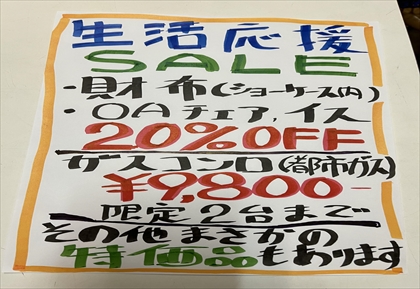 生活応援
SALE
・財布(ショーケース内)
・OAチェア,イス
20%OFF
ガスコンロ(都市ガス)
¥9,800-
限定2台まで
その他まさかの
特価品もあります